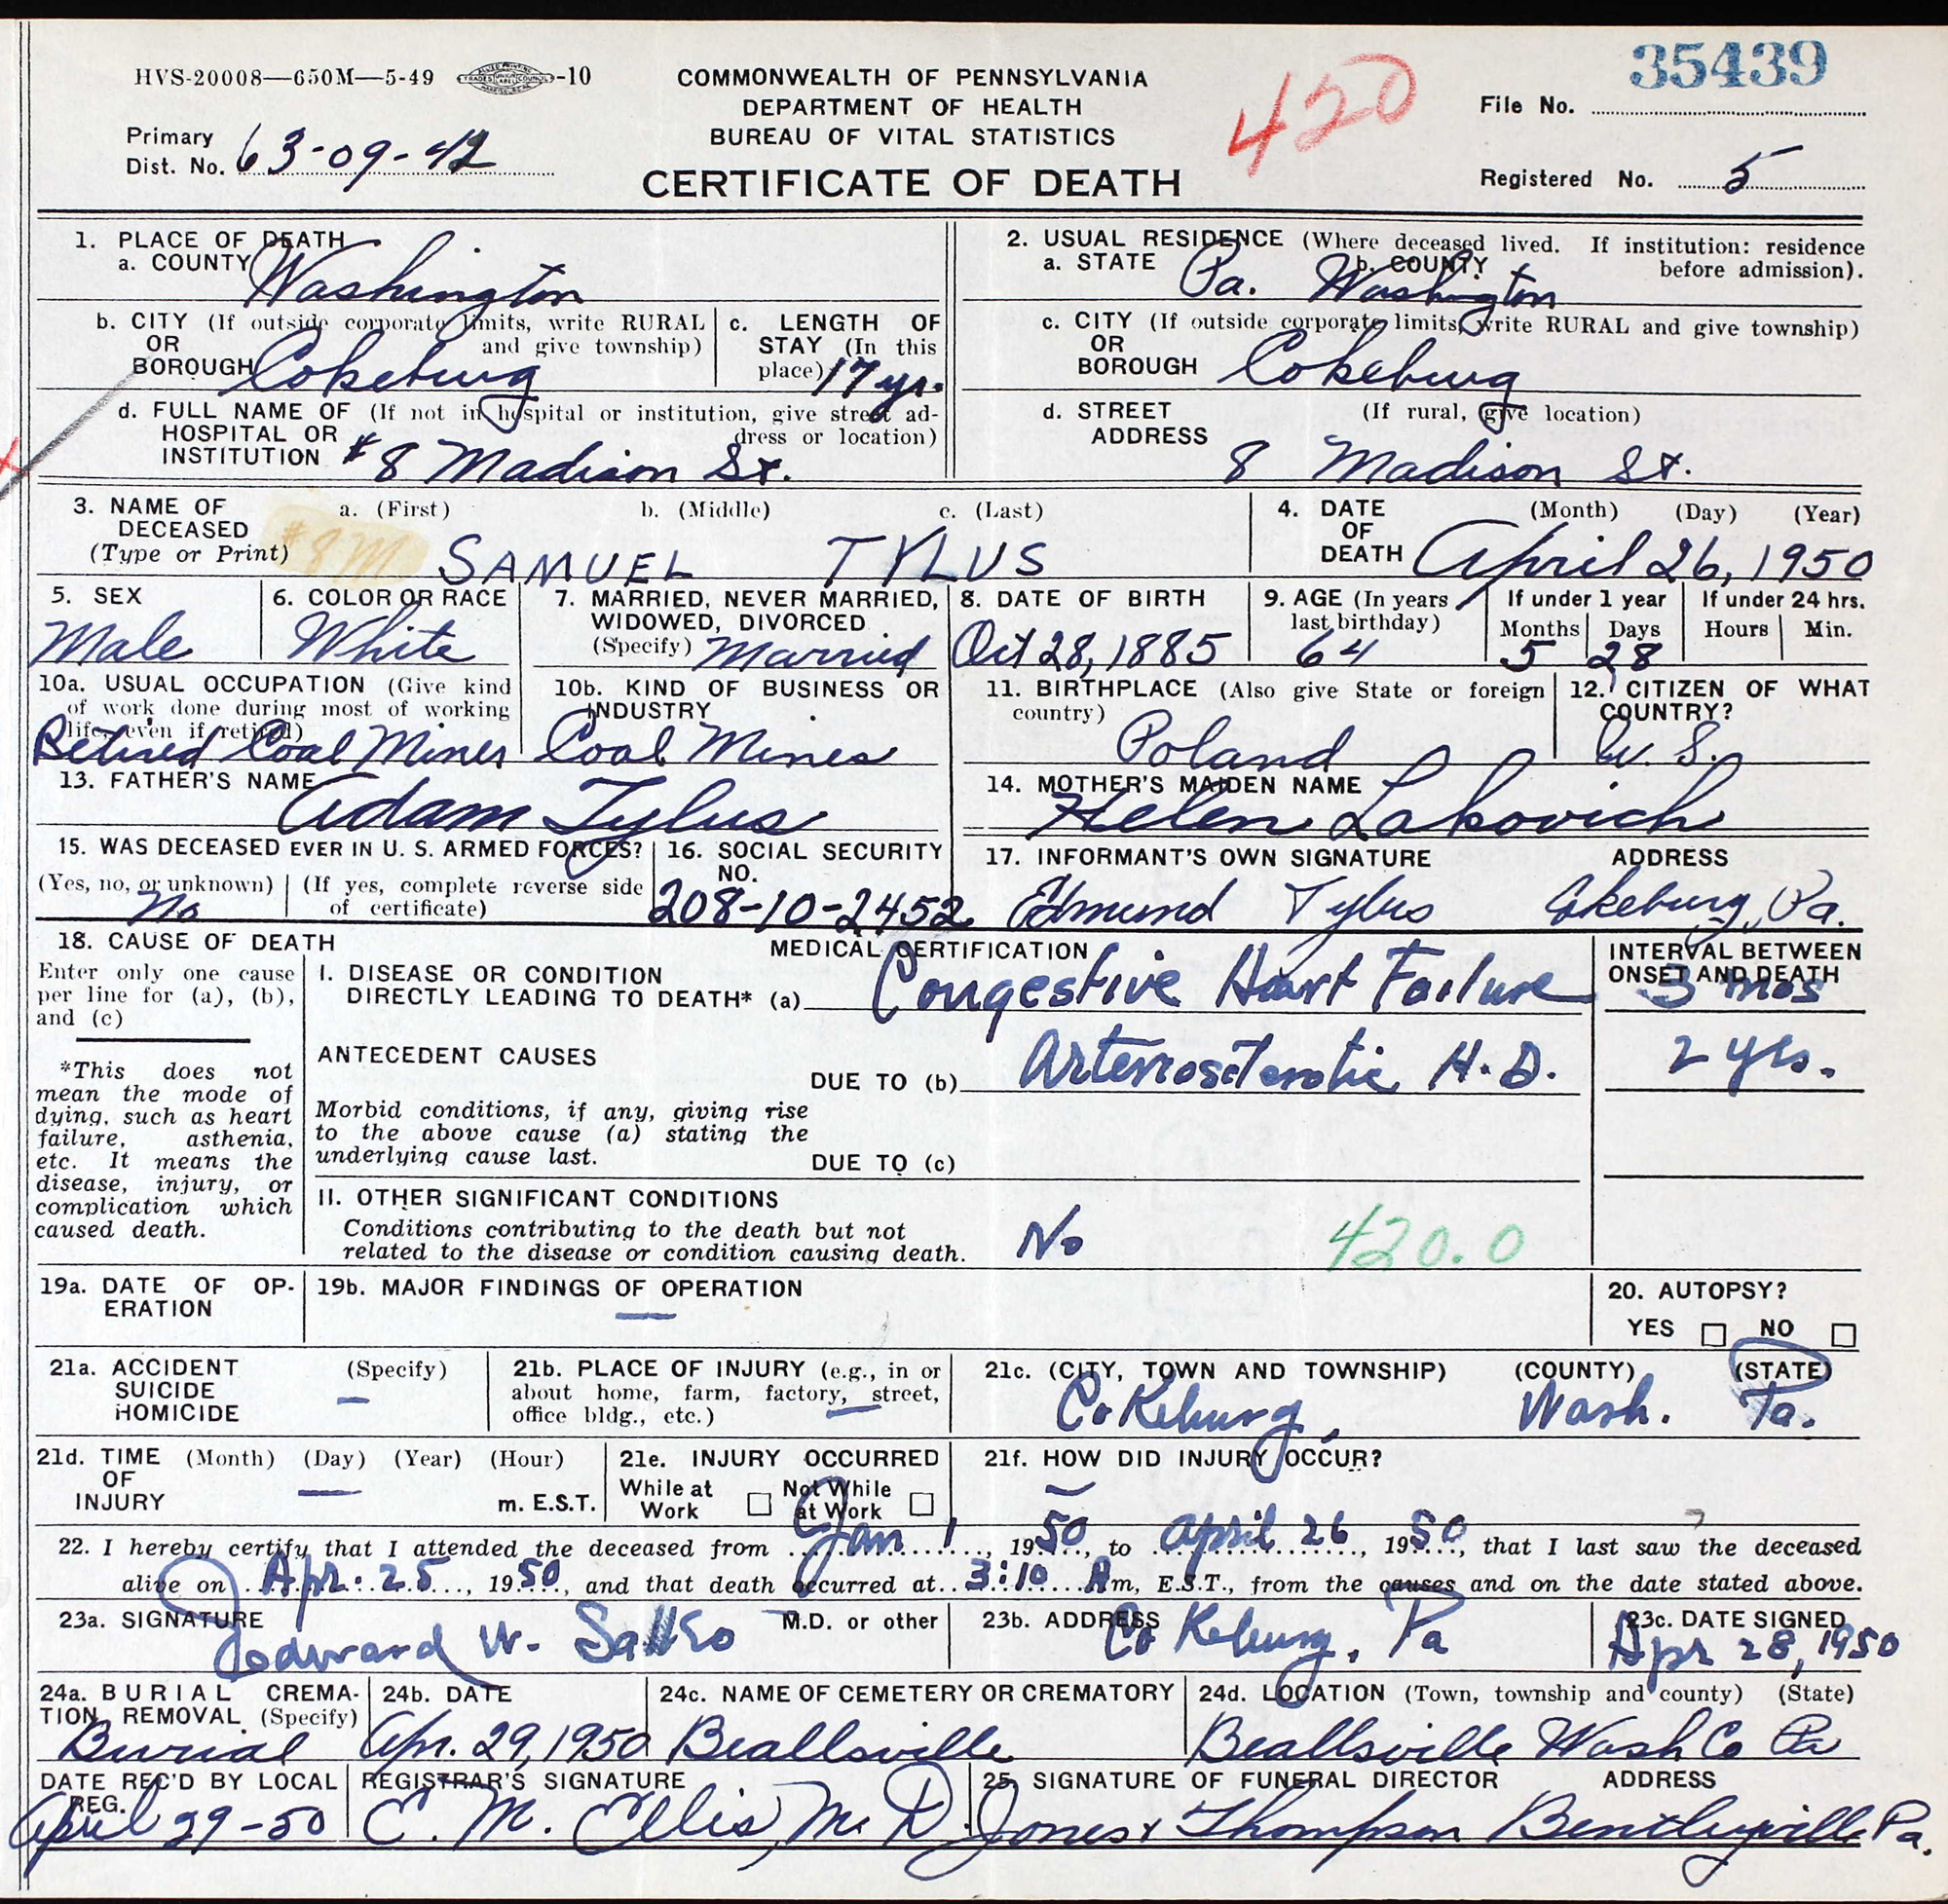 35439
HVS-20008—650M—5-49 -10
COMMONWEALTH OF PENNSYLVANIA
DEPARTMENT OF HEALTH
BUREAU OF VITAL STATISTICS
CERTIFICATE OF DEATH
420
File No.
Primary
Dist. No. 63-09-42
Registered No. 5
1. PLACE OF DEATH
a. COUNTY Washington
2. USUAL RESIDENCE (Where deceased lived. If institution: residence before admission).
a. STATE Pa. b. COUNTY Washington
b. CITY (If outside corporate limits, write RURAL and give township)
OR
BOROUGH Cokeburg
c. LENGTH OF STAY (In this place) 17 yr.
c. CITY (If outside corporate limits, write RURAL and give township)
OR
BOROUGH Cokeburg
d. FULL NAME OF (If not in hospital or institution, give street address or location)
HOSPITAL OR
INSTITUTION # 8 Madison St.
d. STREET (If rural, give location)
ADDRESS 8 Madison St.
3. NAME OF DECEASED
(Type or Print)
#8M
a. (First) b. (Middle) c. (Last)
SAMUEL TYLUS
4. DATE OF DEATH (Month) (Day) (Year)
April 26, 1950
5. SEX
Male
6. COLOR OR RACE
White
7. MARRIED, NEVER MARRIED, WIDOWED, DIVORCED
(Specify) Married
8. DATE OF BIRTH
Oct 28, 1885
9. AGE (In years last birthday)
64
If under 1 year
Months Days
5 28
If under 24 hrs.
Hours Min.
10a. USUAL OCCUPATION (Give kind of work done during most of working life, even if retired)
Retired Coal Miner
10b. KIND OF BUSINESS OR INDUSTRY
Coal Mines
11. BIRTHPLACE (Also give State or foreign country)
Poland
12. CITIZEN OF WHAT COUNTRY?
U. S.
13. FATHER'S NAME
Adam Tylus
14. MOTHER'S MAIDEN NAME
Helen Lakovich
15. WAS DECEASED EVER IN U. S. ARMED FORCES?
(Yes, no, or unknown) (If yes, complete reverse side of certificate)
No
16. SOCIAL SECURITY NO.
208-10-2452
17. INFORMANT'S OWN SIGNATURE ADDRESS
Edmund Tylus Cokeburg, Pa.
18. CAUSE OF DEATH
Enter only one cause per line for (a), (b), and (c)
*This does not mean the mode of dying, such as heart failure, asthenia, etc. It means the disease, injury, or complication which caused death.
MEDICAL CERTIFICATION
INTERVAL BETWEEN ONSET AND DEATH
I. DISEASE OR CONDITION
DIRECTLY LEADING TO DEATH* (a) Congestive Heart Failure 3 mos
ANTECEDENT CAUSES
DUE TO (b) Arteriosclerotic H. D. 2 yrs.
Morbid conditions, if any, giving rise to the above cause (a) stating the underlying cause last.
DUE TO (c)
II. OTHER SIGNIFICANT CONDITIONS
Conditions contributing to the death but not related to the disease or condition causing death.
No 420.0
19a. DATE OF OPERATION
19b. MAJOR FINDINGS OF OPERATION
—
20. AUTOPSY?
YES NO
21a. ACCIDENT (Specify)
SUICIDE —
HOMICIDE
21b. PLACE OF INJURY (e.g., in or about home, farm, factory, street, office bldg., etc.) —
21c. (CITY, TOWN AND TOWNSHIP) (COUNTY) (STATE)
Cokeburg, Wash. Pa.
21d. TIME (Month) (Day) (Year) (Hour)
OF —
INJURY m. E.S.T.
21e. INJURY OCCURRED
While at Work Not While at Work
21f. HOW DID INJURY OCCUR?
—
22. I hereby certify that I attended the deceased from Jan 1, 1950, to April 26, 1950, that I last saw the deceased
alive on Apr. 25, 1950, and that death occurred at 3:10 Am, E.S.T., from the causes and on the date stated above.
23a. SIGNATURE M.D. or other
Edward W.
23b. ADDRESS
Cokeburg, Pa
23c. DATE SIGNED
Apr 28, 1950
24a. BURIAL CREMATION, REMOVAL (Specify)
Burial
24b. DATE
Apr. 29, 1950
24c. NAME OF CEMETERY OR CREMATORY
Beallsville
24d. LOCATION (Town, township and county) (State)
Beallsville Wash Co Pa
DATE REC'D BY LOCAL REG.
April 29-50
REGISTRAR'S SIGNATURE
E. M. Ellis, M. D.
25. SIGNATURE OF FUNERAL DIRECTOR ADDRESS
Jones & Thompson Bentleyville Pa.